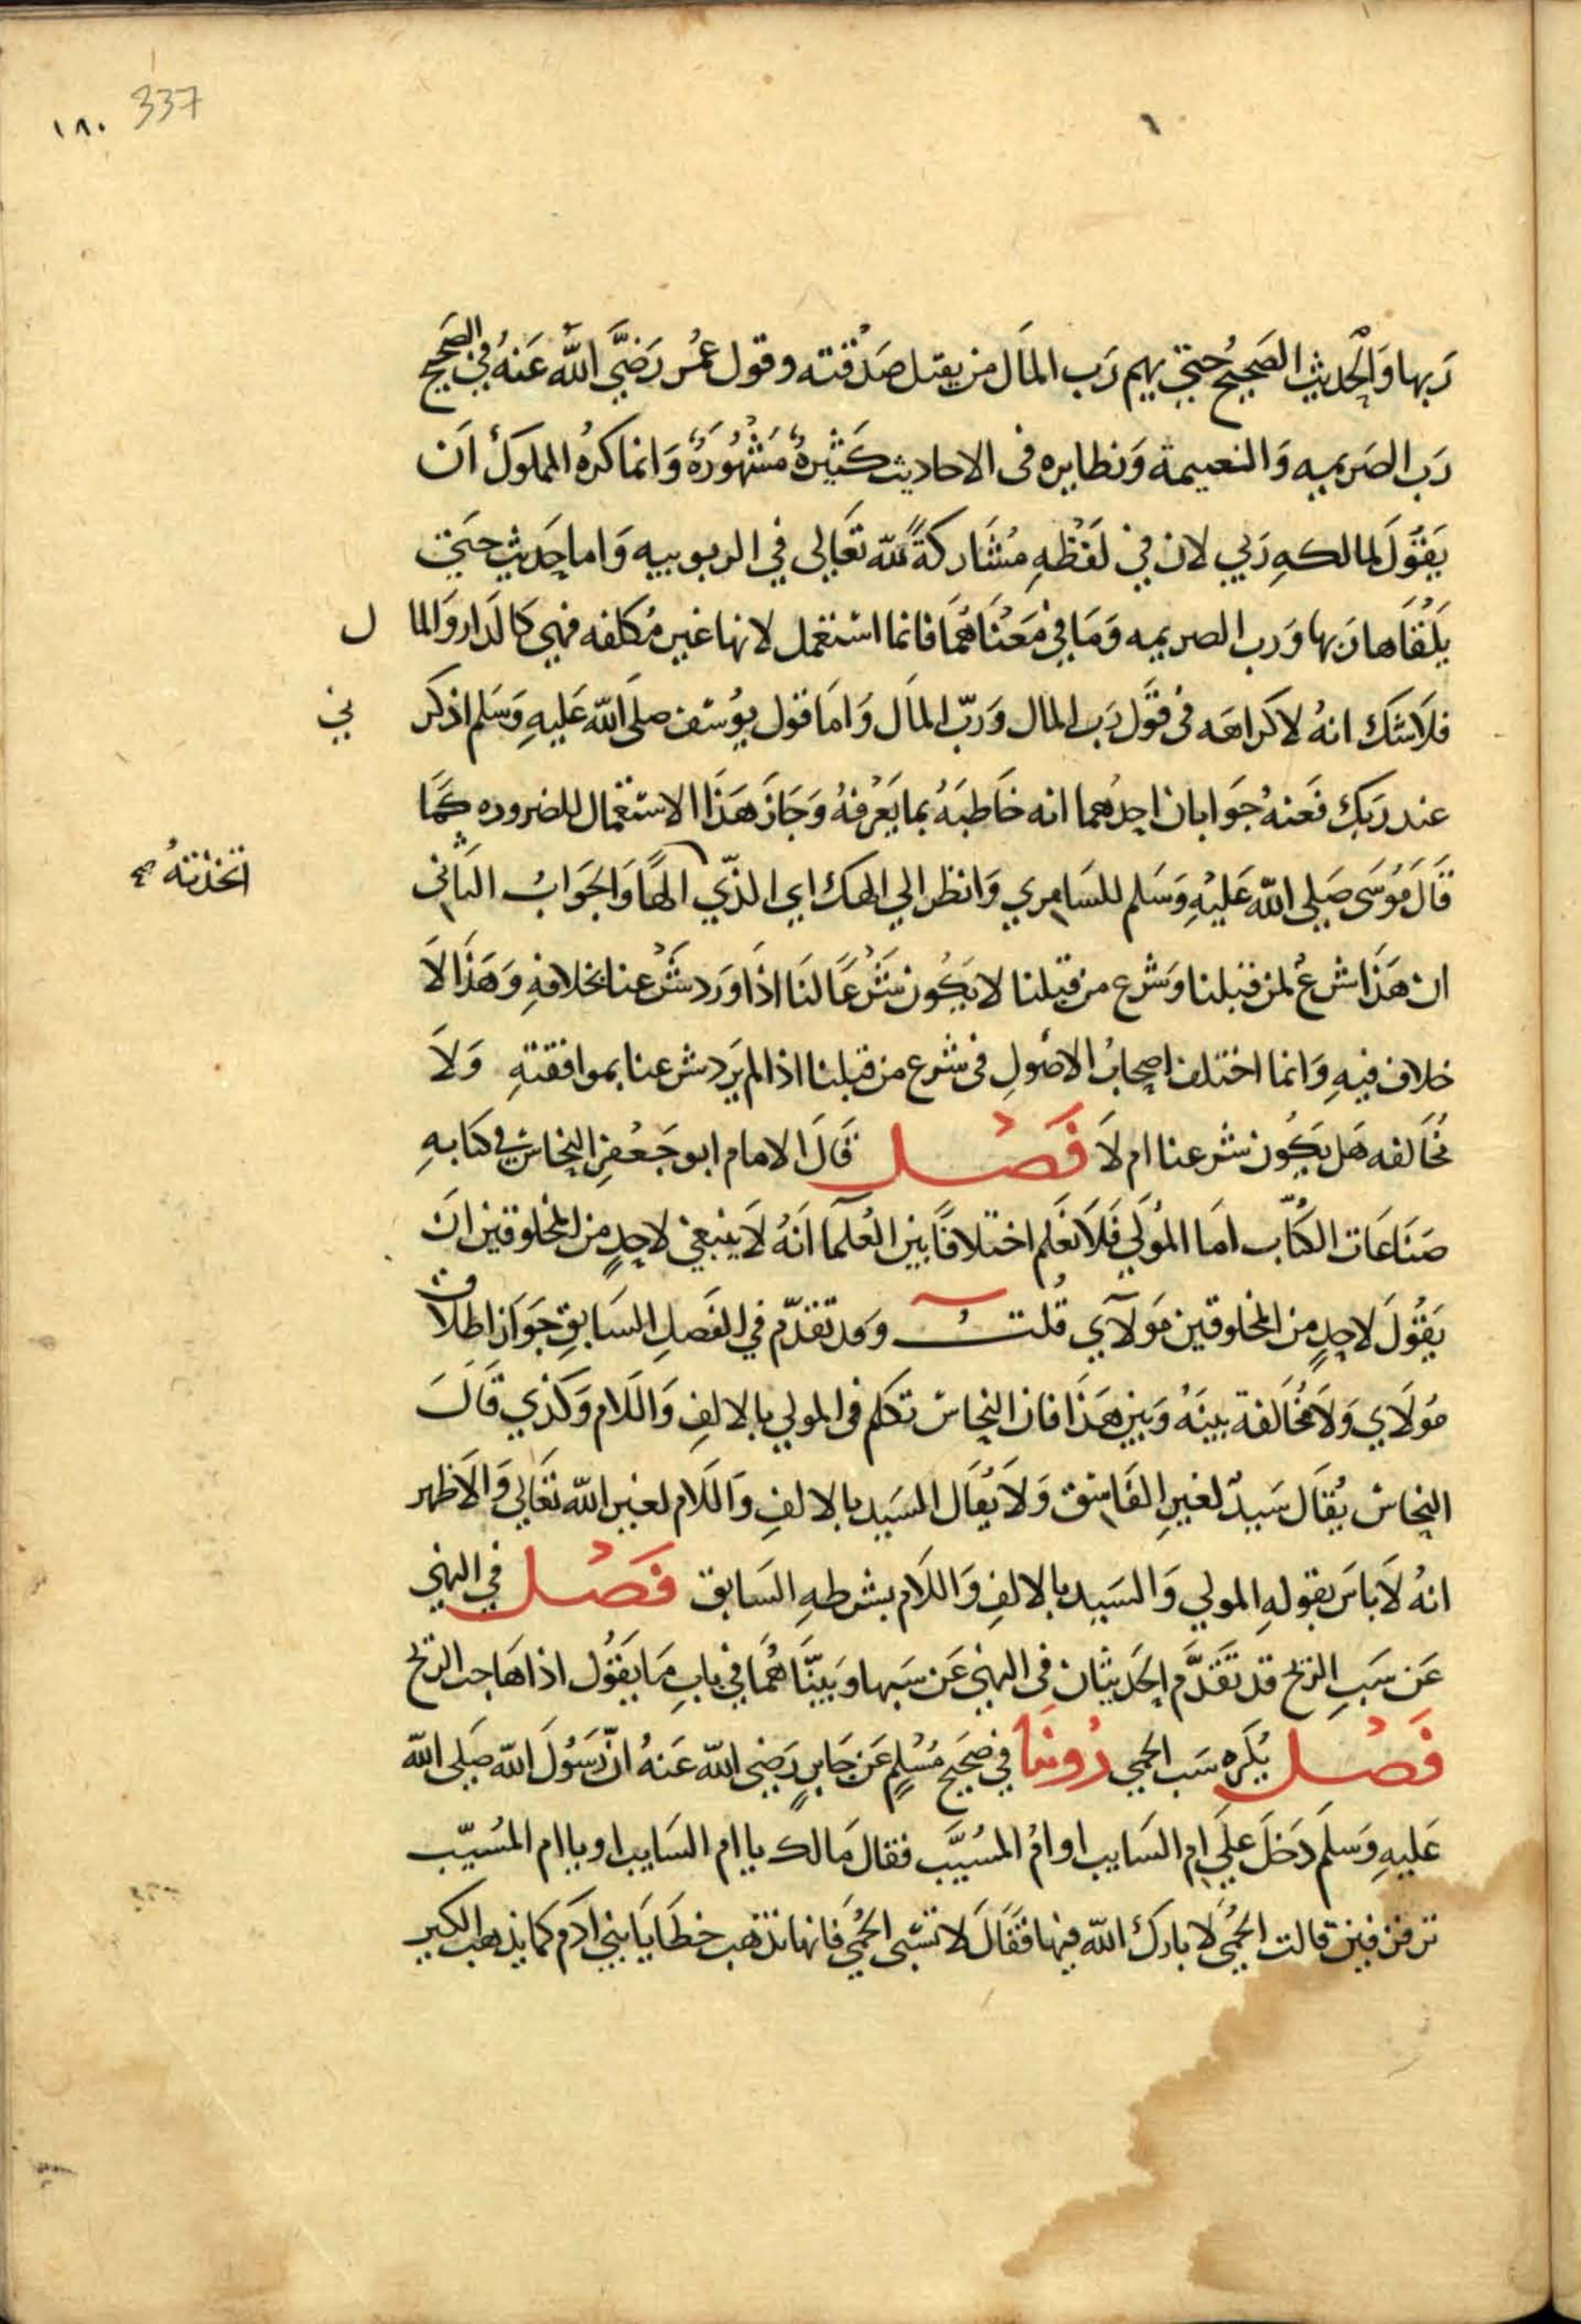 337
١٨٠
ربها والحديث الصحيح حتي يهم رب المال من يقبل صدقته وقول عمر رضي الله عنه في الصحيح
رب الصريمه والنعيمة ونظايره فى الاحاديث كثيرة مشهورة وانما كره المملوك ان
يقول لمالكه ربي لان في لفظه مشاركة لله تعالي في الربوبيه واما حديث حتي
يلقاها ربها ورب الصريمه وما في معناهما فانما استعمل لانها غير مكلفه فهي كالدار والما ل
فلا شك انه لا كراهه فى قول رب المال ورب المال واما قول يوسف صلى الله عليه وسلم اذكر ني
عند ربك فعنه جوابان احدهما انه خاطبه بما يعرفه وجاز هذا الاستعمال للضروره كما
قال موسى صلي الله عليه وسلم للسامري وانظر الي الهك اي الذي الهًا والجواب الثاني
اتخذته صح
ان هذا شرع لمن قبلنا وشرع من قبلنا لا يكون شرعا لنا اذا ورد شرعنا بخلافه وهذا لا
خلاف فيه وانما اختلف اصحاب الاصول فى شرع من قبلنا اذا لم يرد شرعنا بموافقته ولا
مخالفه هل يكون شرعنا ام لا فصل قال الامام ابو جعفر النحاس في كتابه
صناعات الكتّاب اما المولي فلا نعلم اختلافًا بين العلما انه لا ينبغي لاحدٍ من المخلوقين ان
يقول لاحدٍ من المخلوقين مولاي قلت وقد تقدّم في الفصل السابق جواز اطلاق
مولاي ولا مخالفة بينه وبين هذا فان النحاس تكلم فى المولي بالالف واللام وكذي قال
النحاس يقال سيدٌ لغير الفاسق ولا يقال السيد بالالف واللام لغير الله تعالي والاظهر
انه لا باس بقوله المولي والسيد بالالف واللام بشرطه السابق فصل في النهي
عن سب الريح قد تقدّم الحديثان فى النهي عن سبها وبيّناهما في باب ما يقول اذا هاجت الريح
فصل يكره سب الحمي روينا في صحيح مسلم عن جابرٍ رضي الله عنه ان رسول الله صلي الله
عليه وسلم دخل علي ام السايب او ام المسيّب فقال مالك يا ام السايب او يا ام المسيّب
تزفزفين قالت الحمي لا بارك الله فيها فقال لا تسبى الحمي فانها تذهب خطايا بني ادم كما يذهب الكير